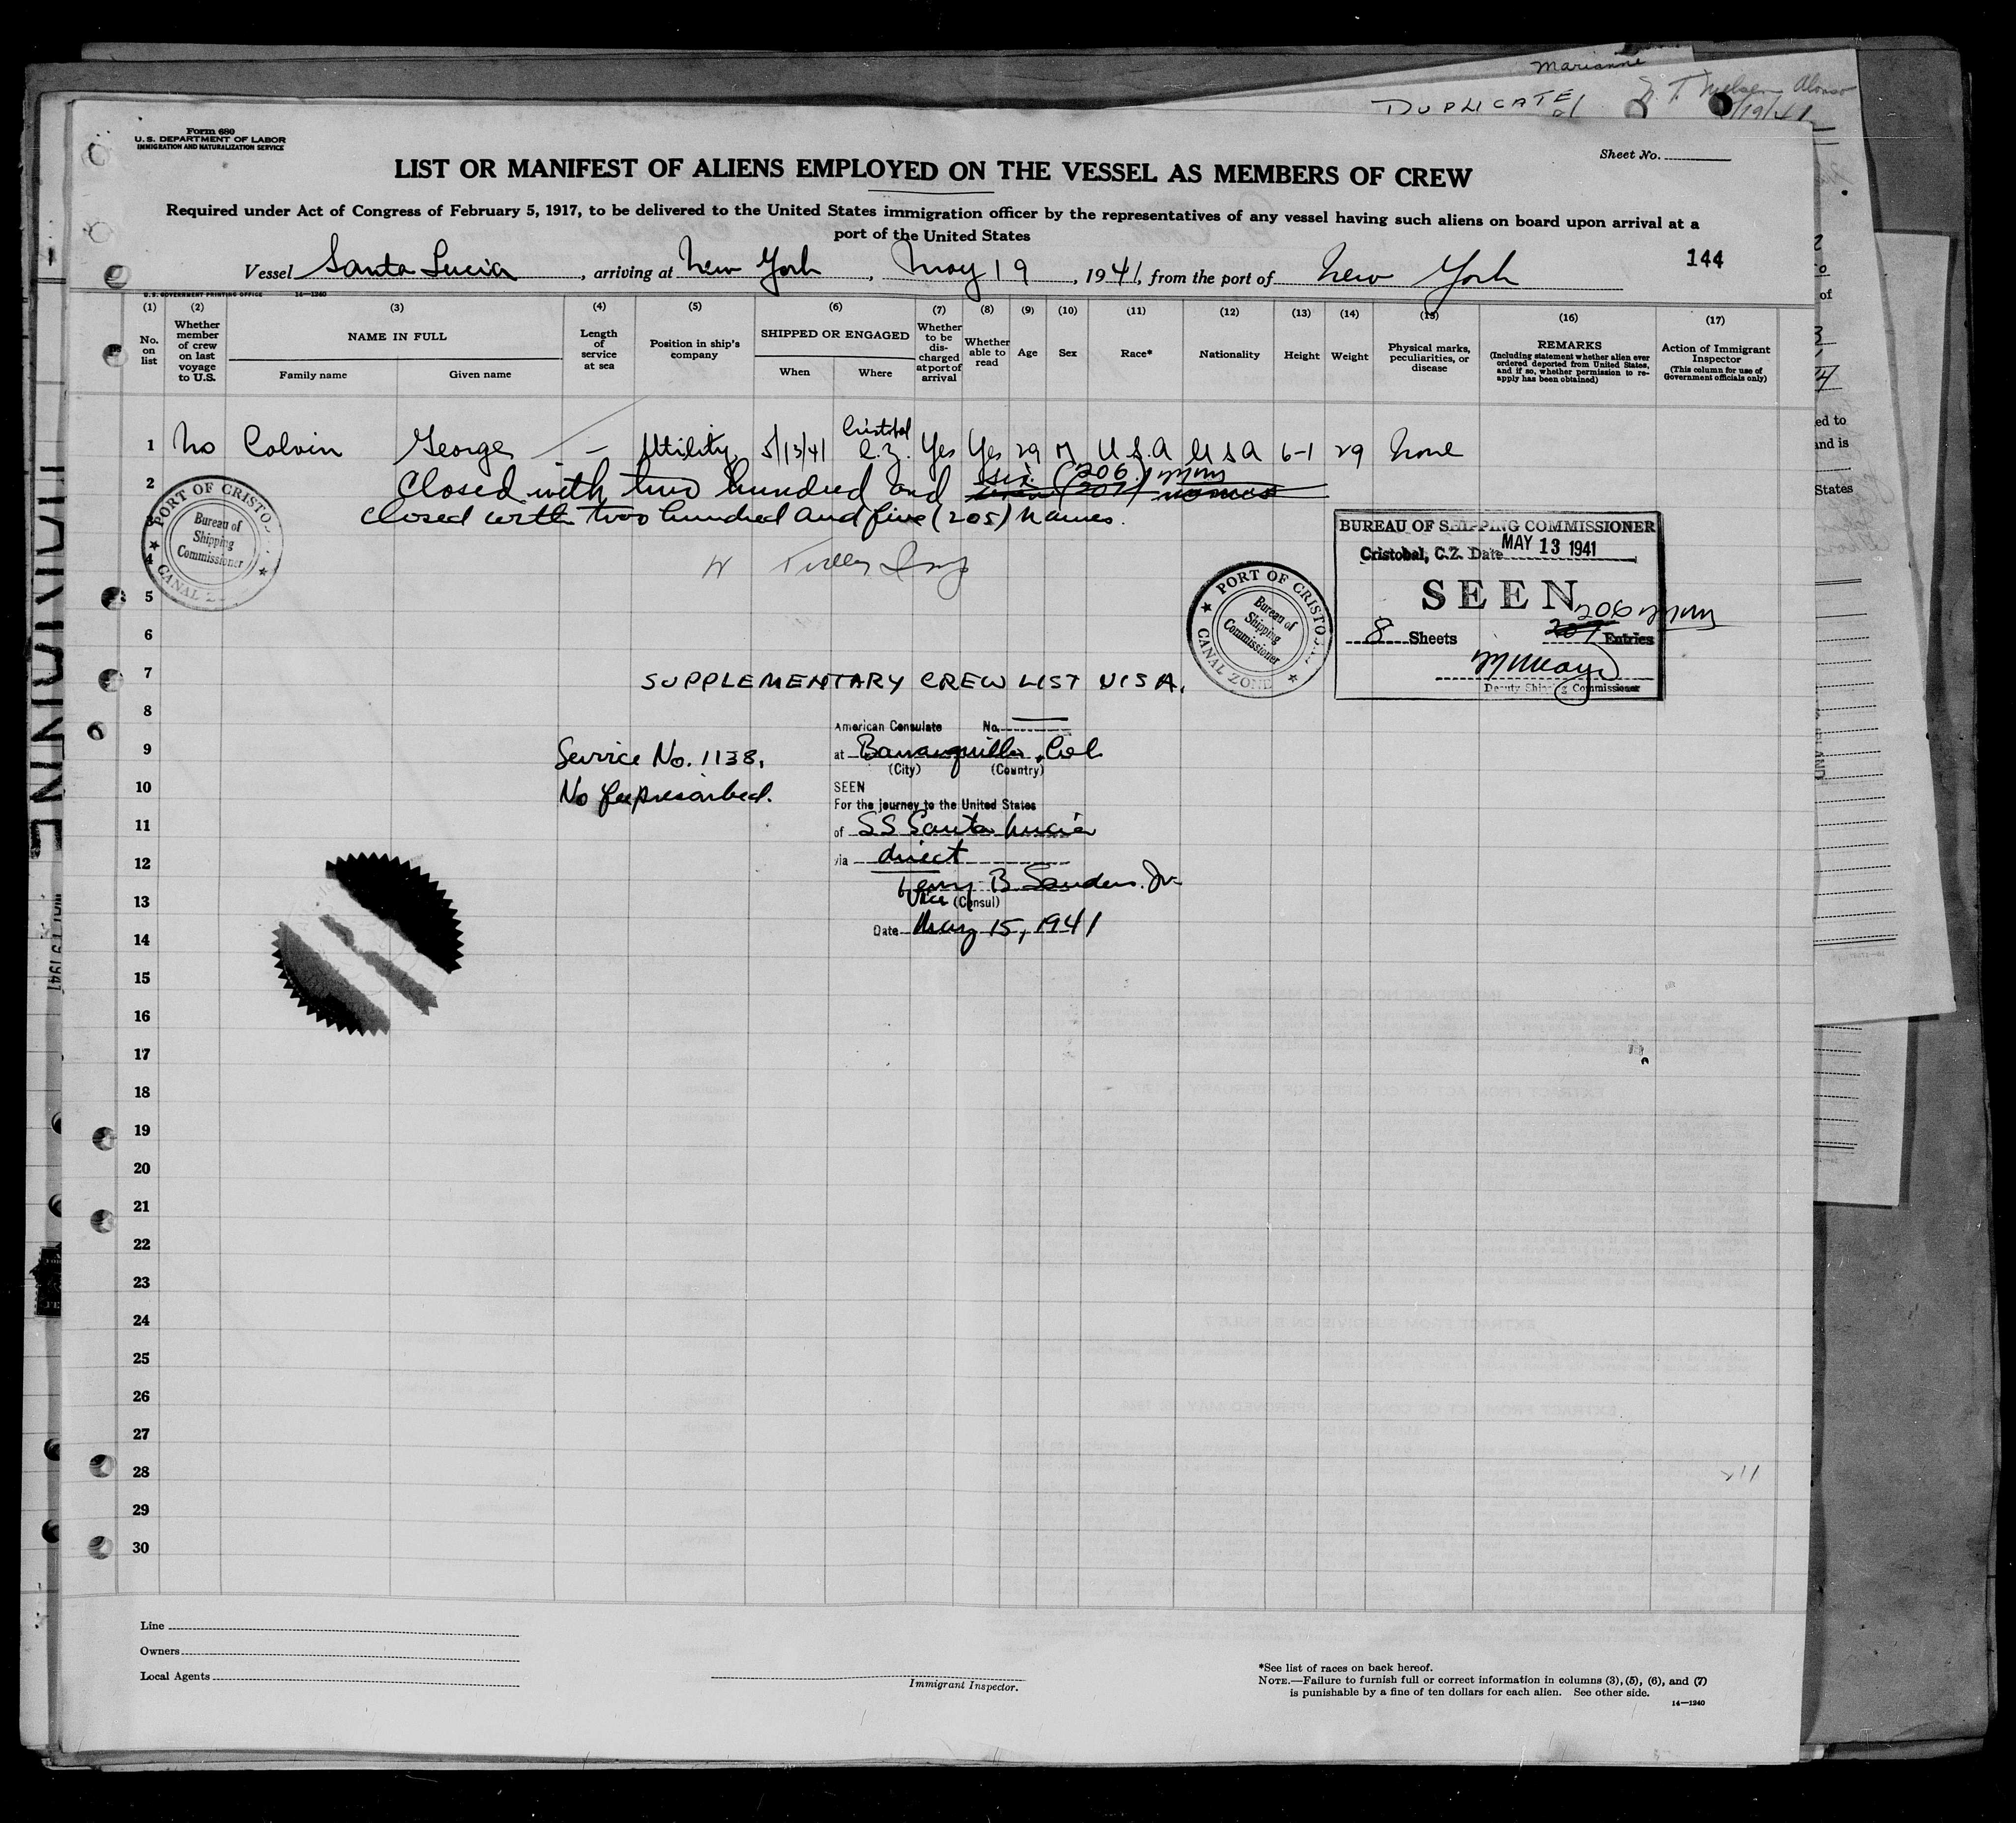 Marianne
DUPLICATE
Form 680
U.S. DEPARTMENT OF LABOR
IMMIGRATION AND NATURALIZATION SERVICE
Sheet No.
LIST OR MANIFEST OF ALIENS EMPLOYED ON THE VESSEL AS MEMBERS OF CREW
Required under Act of Congress of February 5, 1917, to be delivered to the United States immigration officer by the representatives of any vessel having such aliens on board upon arrival at a
port of the United States
144
Vessel Santa Lucia, arriving at New York, May 19, 1941, from the port of New York
U.S. GOVERNMENT PRINTING OFFICE 14—1240
(1) (2) (3) (4) (5) (6) (7) (8) (9) (10) (11) (12) (13) (14) (15) (16) (17)
No. on list
Whether member of crew on last voyage to U.S.
NAME IN FULL
Family name Given name
Length of service at sea
Position in ship's company
SHIPPED OR ENGAGED
When Where
Whether to be discharged at port of arrival
Whether able to read
Age
Sex
Race*
Nationality
Height
Weight
Physical marks, peculiarities, or disease
REMARKS
(Including statement whether alien ever ordered deported from United States, and if so, whether permission to reapply has been obtained)
Action of Immigrant Inspector
(This column for use of Government officials only)
1 No Colvin George — Utility 5/13/41 Cristobal C.Z. Yes Yes 29 M U.S.A U S A 6-1 29 None
2 Closed with two hundred and six (206)
3 Closed with two hundred and five (205) names.
4
5
6
7 SUPPLEMENTARY CREW LIST VISA.
8
9
10
11
12
13
14
15
16
17
18
19
20
21
22
23
24
25
26
27
28
29
30
PORT OF CRISTO
Bureau of
Shipping
Commissioner
CANAL Z
PORT OF CRISTO
Bureau of
Shipping
Commissioner
CANAL ZONE
BUREAU OF SHIPPING COMMISSIONER
Cristobal, C.Z. Date MAY 13 1941
SEEN
206
8 Sheets 207 Entries
Deputy Shipping Commissioner
Service No. 1138.
No fee prescribed.
American Consulate No.
at Barranquilla, Col
(City) (Country)
SEEN
For the journey to the United States
of SS Santa Lucia
via direct
Terry B Sanders. Jr.
Vice (Consul)
Date May 15, 1941
211
Line
Owners
Local Agents
Immigrant Inspector.
*See list of races on back hereof.
NOTE.—Failure to furnish full or correct information in columns (3), (5), (6), and (7)
is punishable by a fine of ten dollars for each alien. See other side.
14—1240